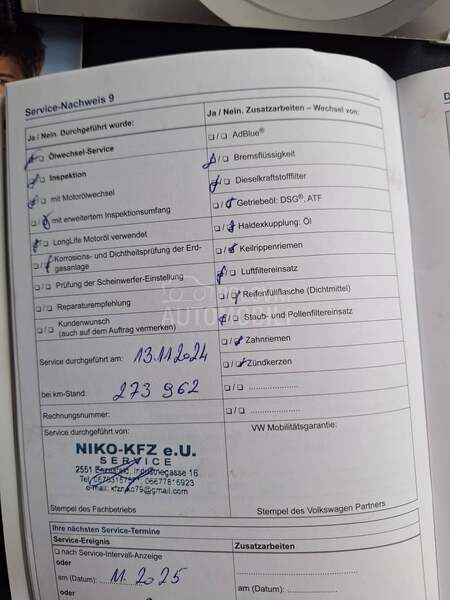 Service-Nachweis 9
Ja / Nein. Durchgeführt wurde:
Ölwechsel-Service
Inspektion
mit Motorölwechsel
mit erweitertem Inspektionsumfang
LongLife Motoröl verwendet
Korrosions- und Dichtheitsprüfung der Erd-
gasanlage
Prüfung der Scheinwerfer-Einstellung
Reparaturempfehlung
Kundenwunsch
(auch auf dem Auftrag vermerken)
Service durchgeführt am: 13.11.2024
bei km-Stand: 273 962
Rechnungsnummer:
Service durchgeführt von:
NIKO-KFZ e.U.
SERVICE
2551 Enzesfeld, Industriegasse 16
Stempel des Fachbetriebs
Ja / Nein. Zusatzarbeiten – Wechsel von:
AdBlue®
Bremsflüssigkeit
Dieselkraftstofffilter
Getriebeöl: DSG®, ATF
Haldexkupplung: Öl
Keilrippenriemen
Luftfiltereinsatz
Reifenfüllflasche (Dichtmittel)
Staub- und Pollenfiltereinsatz
Zahnriemen
Zündkerzen
VW Mobilitätsgarantie:
Stempel des Volkswagen Partners
Ihre nächsten Service-Termine
Service-Ereignis
nach Service-Intervall-Anzeige
oder
am (Datum): 11.2025
oder
Zusatzarbeiten
am (Datum):